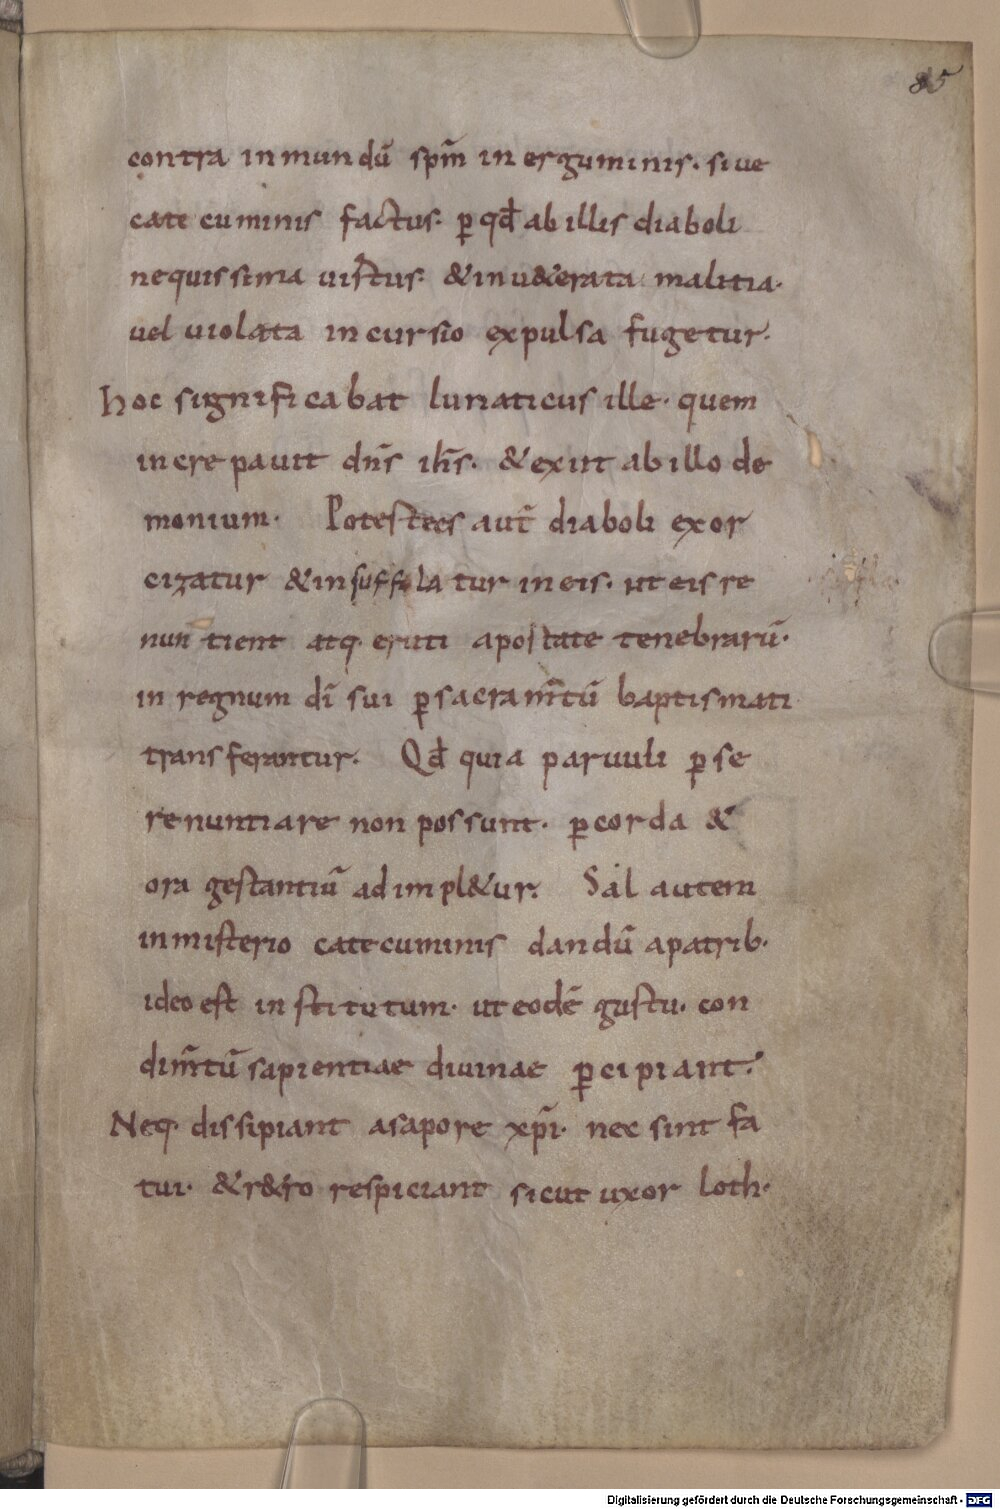 85
contra inmundū spm̄ inerguminis. siue
catecuminis factus. ꝑ qđ ab illis diaboli
nequissima uirtus. & inu&erata malitia.
uel uiolata incursio expulsa fugetur.
hoc significabat lunaticus ille. quem
increpauit dn̄s ih̄s. & exiit ab illo de
monium. Potestas aut̄ diaboli exor
cizatur & insufflatur in eis. ut eis re
nuntient atq. eruti apostate tenebrarū.
in regnum dī sui ꝑ sacram̄tū baptismati
transferantur. Qđ quia paruuli ꝑ se
renuntiare non possunt. ꝑ corda &
ora gestantiū adimpl&ur. Sal autem
in misterio catecuminis dandū a patrib.
ideo est institutum. ut eodē gustu. con
dim̄tū sapientiae diuinae ꝑcipiant.
Neq. dissipiant a sapore xp̄i. nec sint fa
tui. & r&ro respiciant sicut uxor loth.
Digitalisierung gefördert durch die Deutsche Forschungsgemeinschaft - DFG